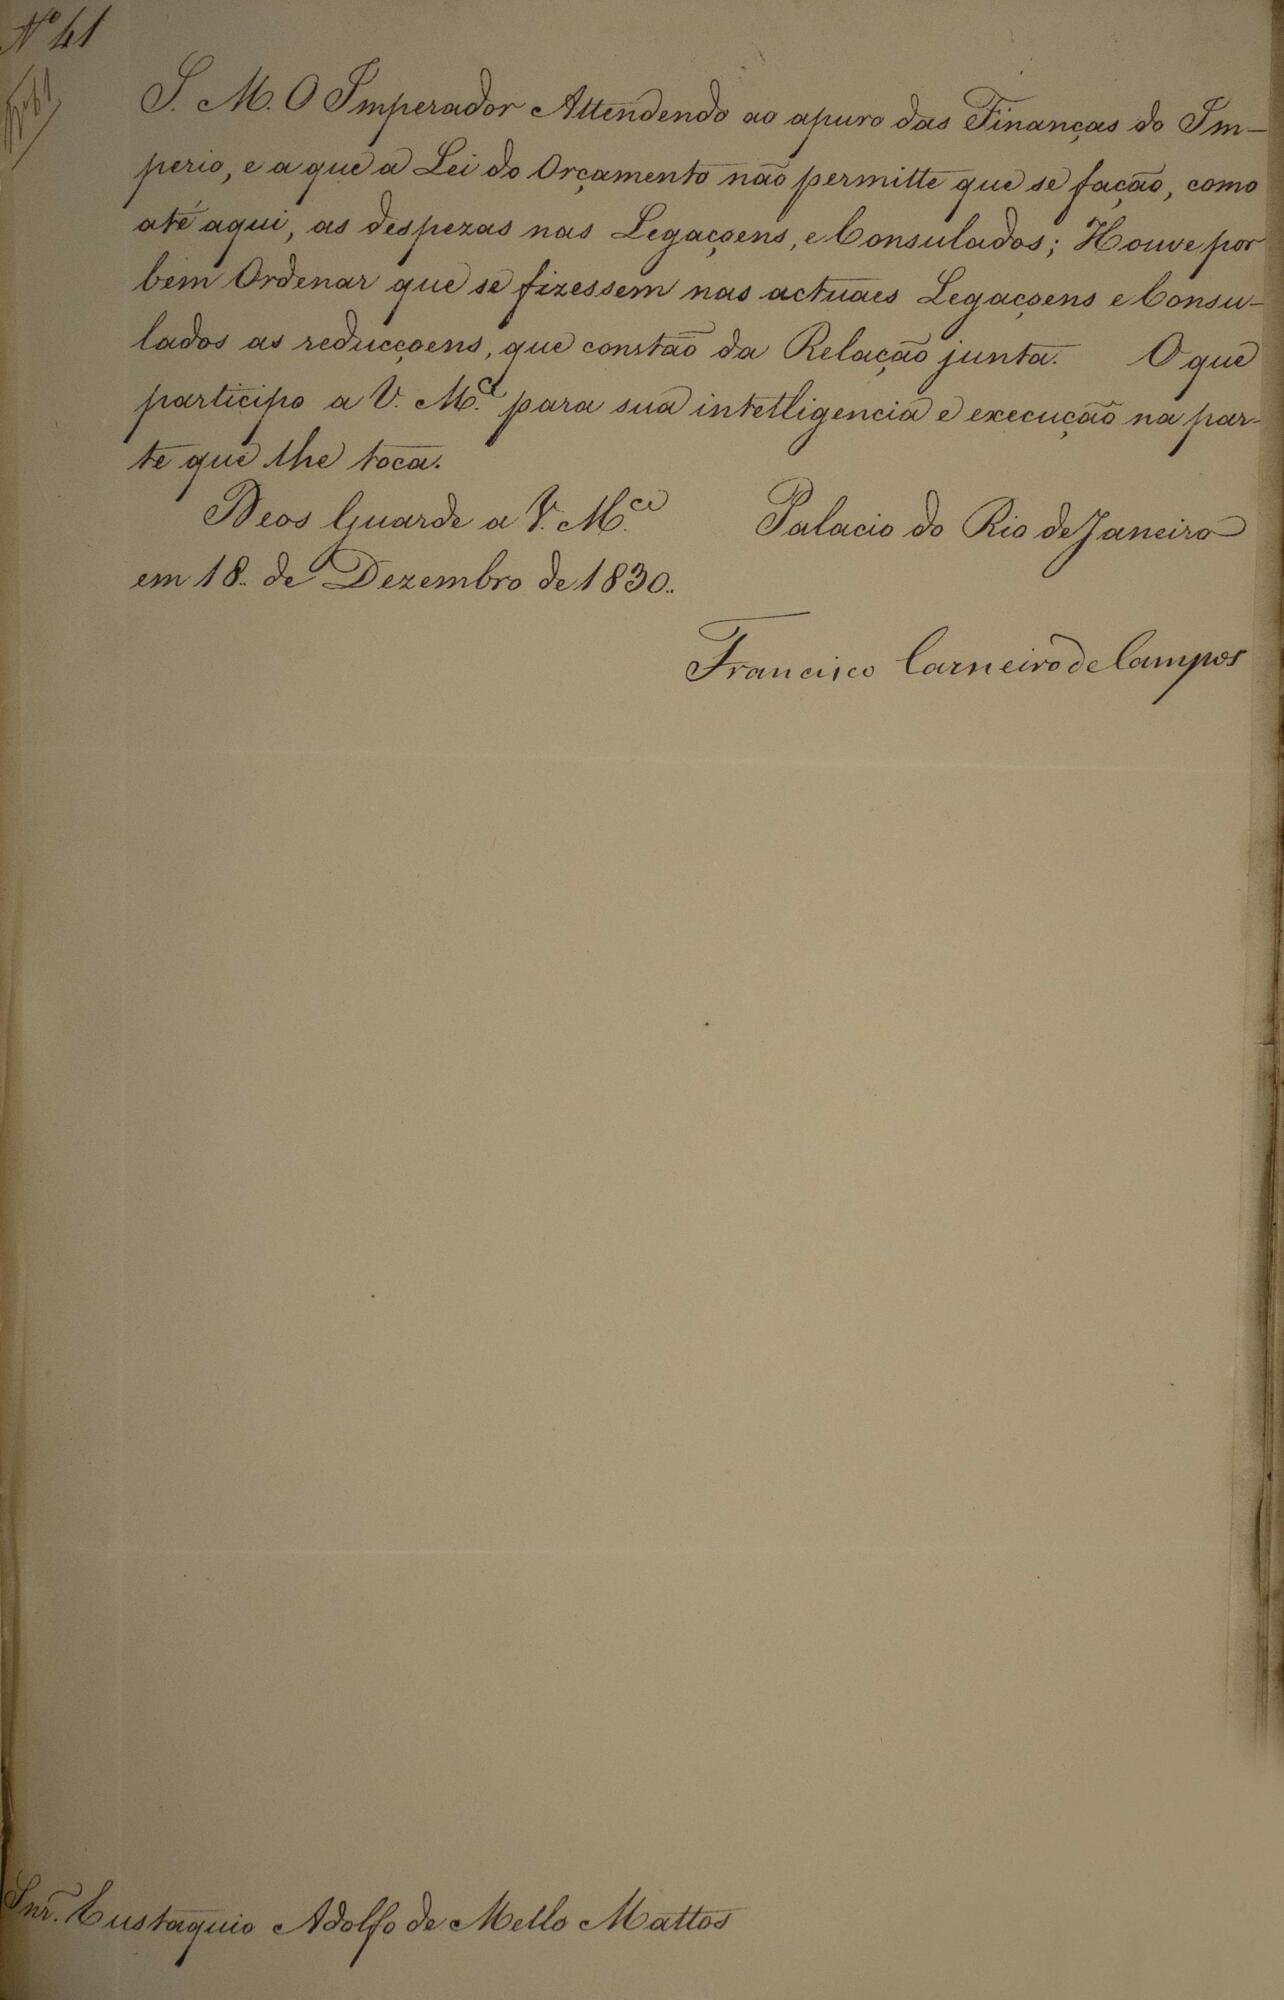 Nº 41
S. M. O Imperador Attendendo ao apuro das Finanças do Im-
perio, e a que a Lei do Orçamento não permitte que se fação, como
até aqui, as despezas nas Legaçoens, e Consulados; Houve por
bem Ordenar que se fizessem nas actuaes Legaçoens e Consu-
lados as reducçoens, que constão da Relação junta. O que
participo a V. M.ce para sua intelligencia e execução na par-
te que lhe toca.
Deos Guarde a V. M.ce Palacio do Rio de Janeiro
em 18.. de Dezembro de 1830..
Francisco Carneiro de Campos
Snr. Eustaquio Adolfo de Mello Mattos